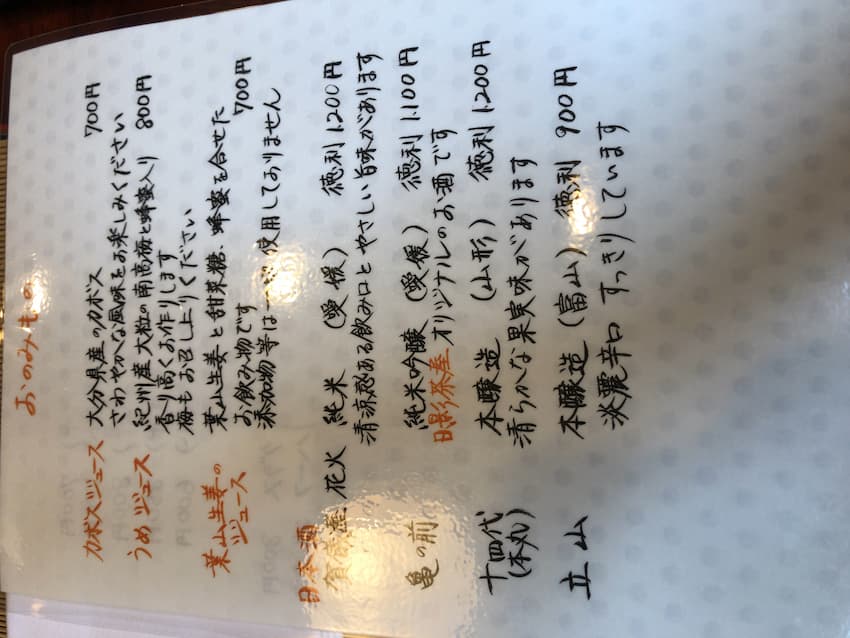 おのみもの
カボスジュース 大分県産のカボス 700円
さわやかな風味をお楽しみください
うめジュース 紀州産大粒の南高梅と蜂蜜入り 800円
香り高くお作りします
梅もお召し上りください
葉山生姜の 葉山生姜と甜菜糖、蜂蜜を合せた
ジュース お飲み物です 700円
添加物等は一切使用しておりません
日本酒
賀儀屋 花火 純米 (愛媛) 徳利 1,200円
清涼感ある飲み口とやさしい旨味があります
亀の前 純米吟醸 (愛媛) 徳利 1,100円
日影茶屋オリジナルのお酒です
十四代 本醸造 (山形) 徳利 1,200円
(本丸) 清らかな果実味があります
立山 本醸造 (富山) 徳利 900円
淡麗辛口 すっきりしています